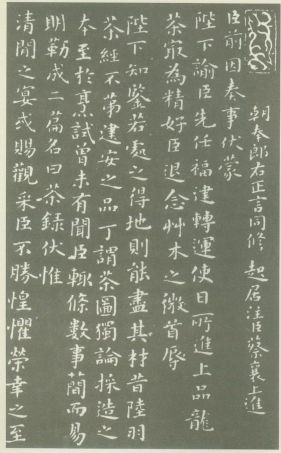 朝奉郎右正言同修 起居注臣蔡襄上進
臣前因奏事伏蒙
陛下諭臣先任福建轉運使日所進上品龍
茶最為精好臣退念艸木之微首辱
陛下知鑒若處之得地則能盡其材昔陸羽
茶經不第建安之品丁謂茶圖獨論採造之
本至於烹試曾未有聞臣輒條數事簡而易
明勒成二篇名曰茶錄伏惟
清閒之宴或賜觀采臣不勝惶懼榮幸之至